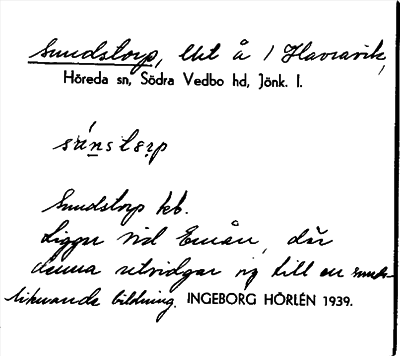 Sundstorp, Ekt å / Havravik,
Höreda sn, Södra Vedbo hd, Jönk. l.
súnstɘrp
Sundstorp kb.
Ligger vid Emån, där
denna utvidgar sig till en sund-
liknande bildning. INGEBORG HÖRLÉN 1939.